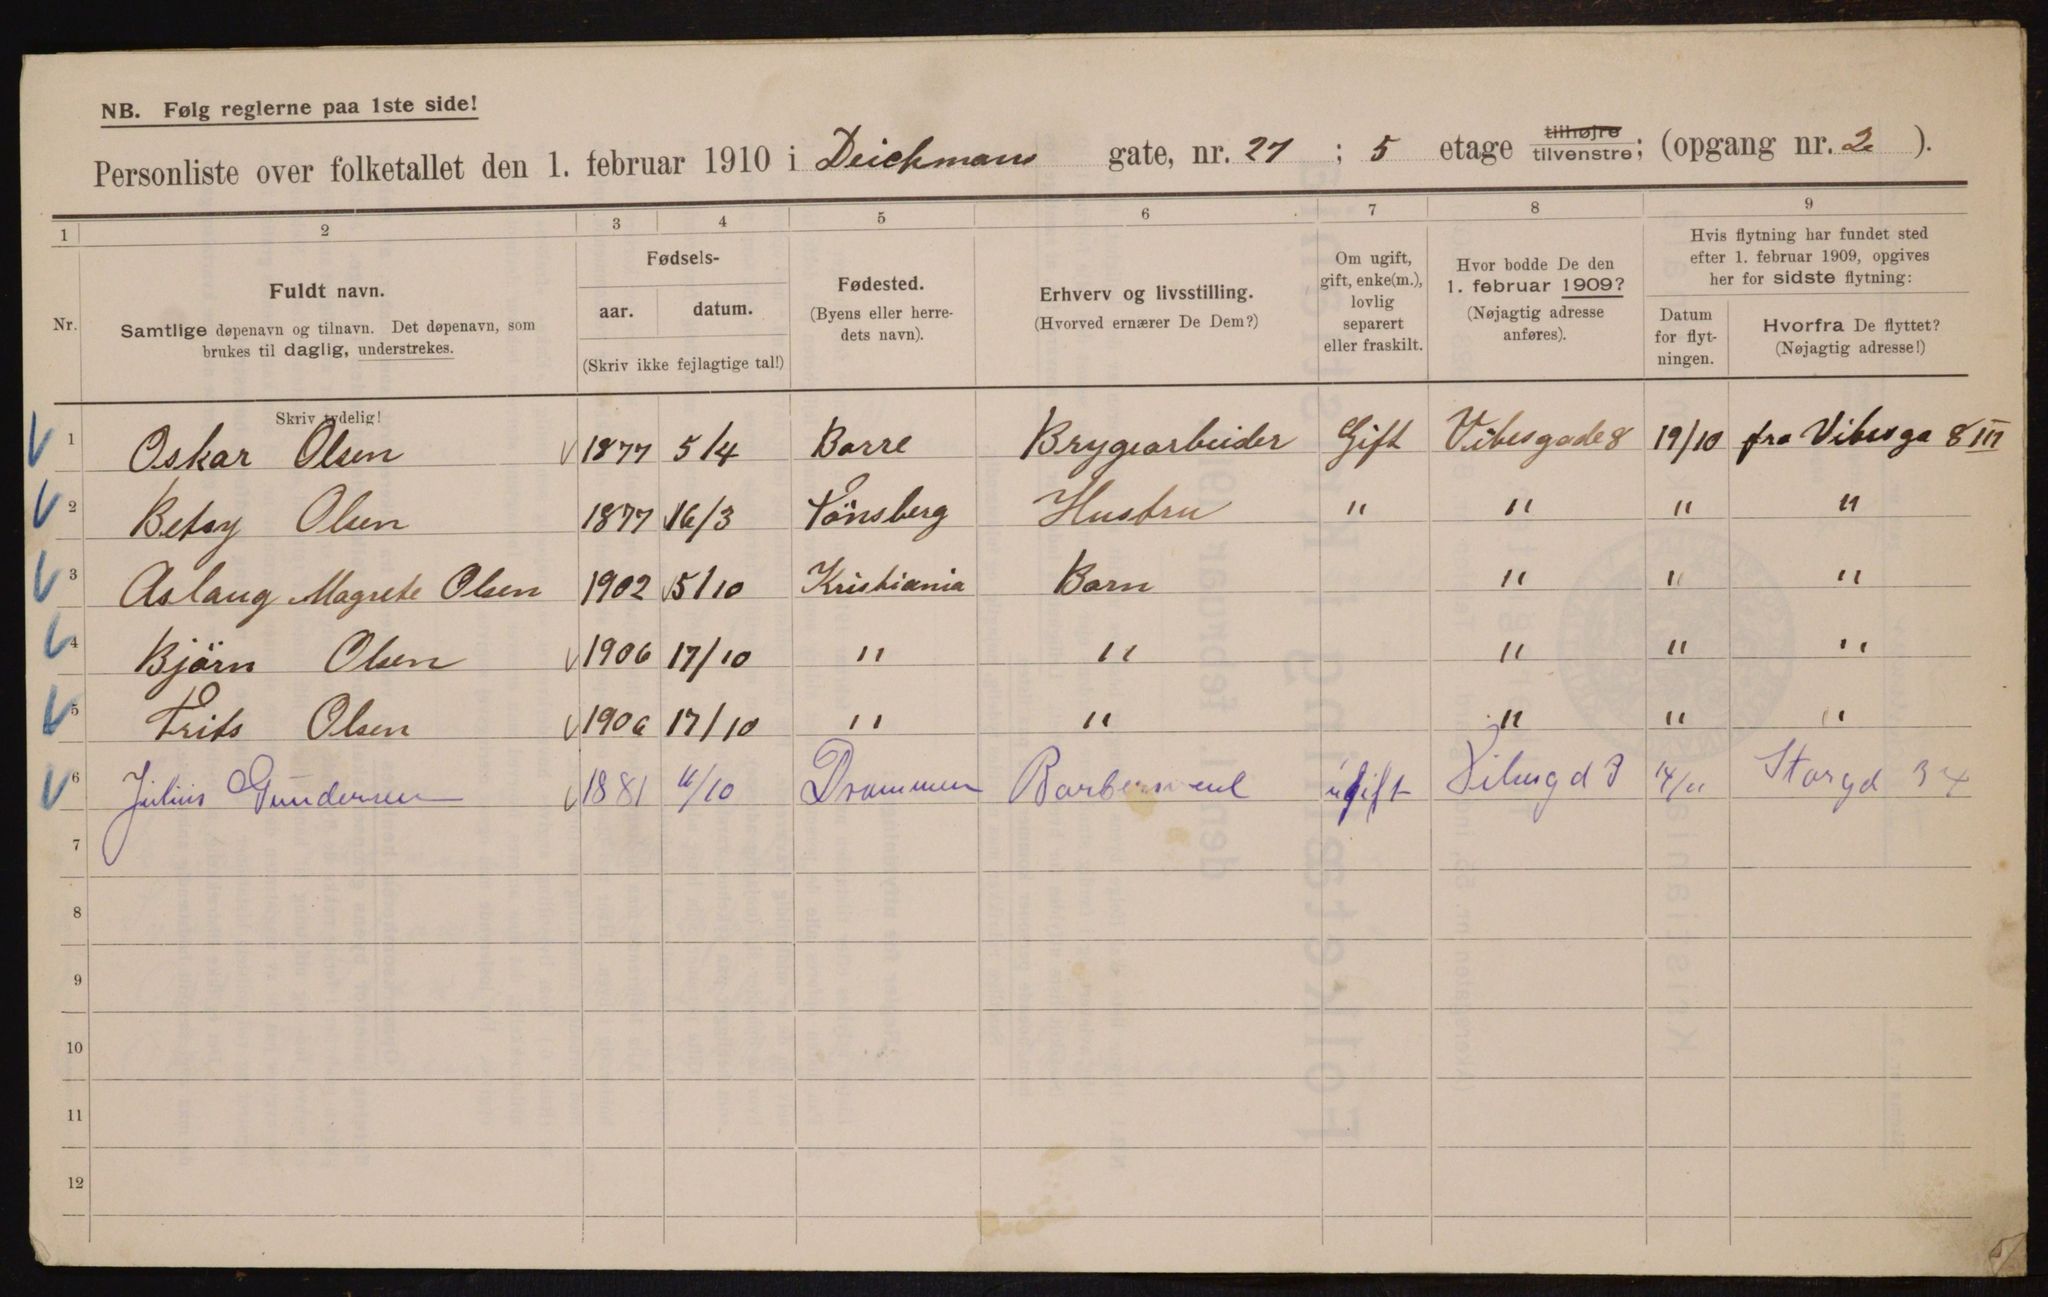 NB. Følg reglerne paa 1ste side!
Personliste over folketallet den 1. februar 1910 i Deichmans gate, nr. 27 ; 5 etage tilhøjre tilvenstre; (opgang nr. 2 ).
1 2 3 4 5 6 7 8 9
Nr.
Fuldt navn.
Samtlige døpenavn og tilnavn. Det døpenavn, som
brukes til daglig, understrekes.
Fødsels-
aar. datum.
(Skriv ikke fejlagtige tal!)
Fødested.
(Byens eller herre-
dets navn).
Erhverv og livsstilling.
(Hvorved ernærer De Dem?)
Om ugift,
gift, enke(m.),
lovlig
separert
eller fraskilt.
Hvor bodde De den
1. februar 1909?
(Nøjagtig adresse
anføres).
Hvis flytning har fundet sted
efter 1. februar 1909, opgives
her for sidste flytning:
Datum
for flyt-
ningen.
Hvorfra De flyttet?
(Nøjagtig adresse!)
Skriv tydelig!
1 Oskar Olsen 1877 5/4 Borre Brygearbeider Gift Vibesgade 8 19/10 fra Vibesga 8 III
2 Betsy Olsen 1877 16/3 Tönsberg Hustru " " " "
3 Aslaug Magrete Olsen 1902 5/10 Kristiania Barn " " "
4 Björn Olsen 1906 17/10 " " " " "
5 Frits Olsen 1906 17/10 " " " " "
6 Julius Gundersen 1881 11/10 Drammen ugift 14/11 Storgd 34
7
8
9
10
11
12